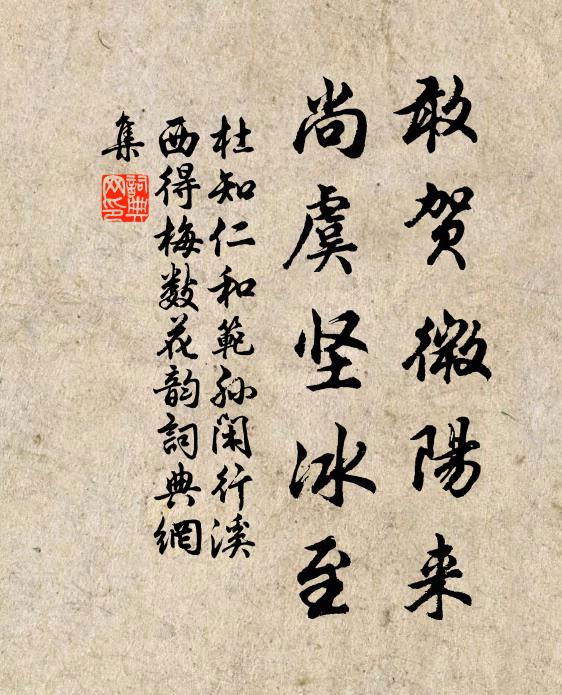 敢贺微陽来
尚虞坚冰至
杜知仁和範孙闲行溪
西得梅数花韵詞典網
集
詞典
网印